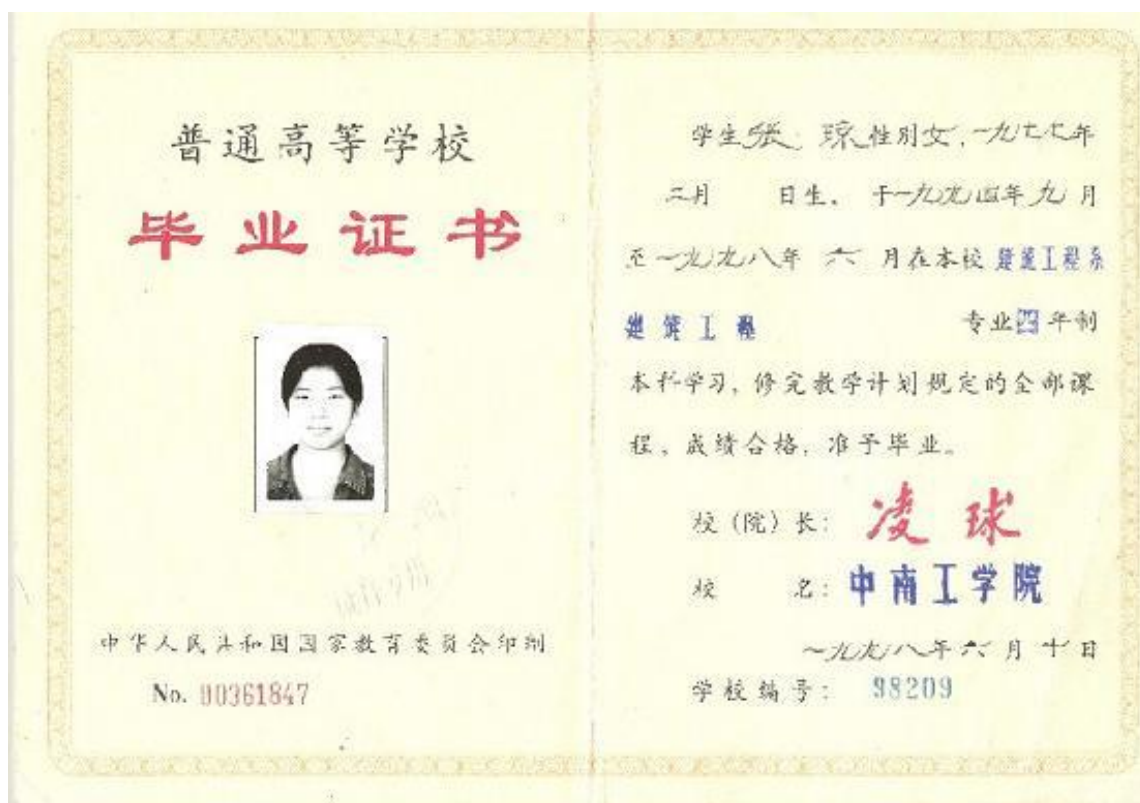 普通高等学校
毕业证书
中华人民共和国国家教育委员会印制
No. 00361847
学生张琼性别女,一九七七年
二月 日生, 于一九九四年九月
至一九九八年 六 月在本校 建筑工程系
建筑工程 专业四年制
本科学习,修完教学计划规定的全部课
程,成绩合格,准予毕业。
校(院)长: 凌球
校 名: 中南工学院
一九九八年六月十日
学校编号: 98209